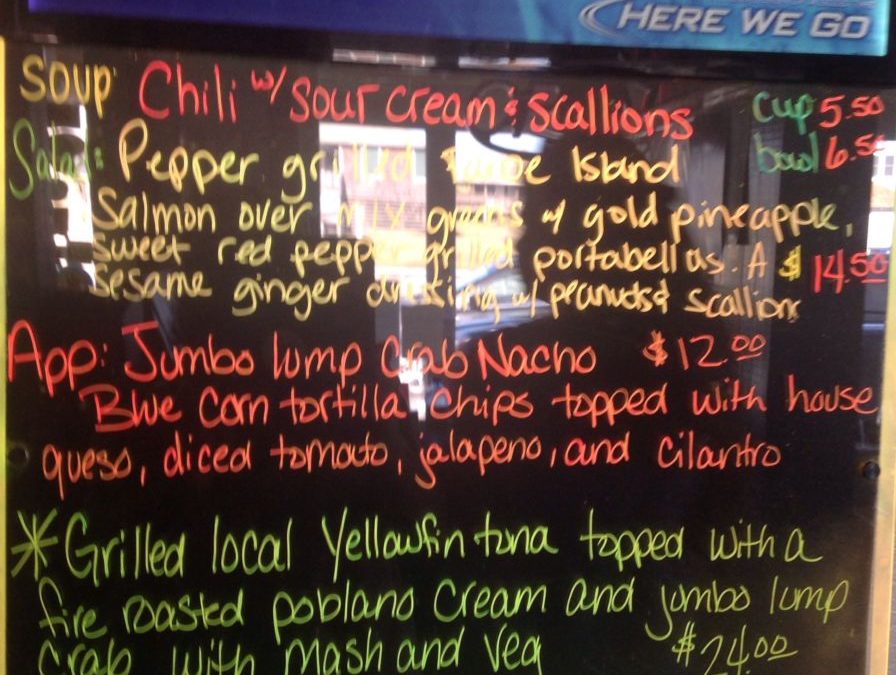 HERE WE GO
SOUP: Chili w/ Sour cream & Scallions cup 5.50
Salad: Pepper grilled Island bowl 6.50
Salmon over mix greens w/ gold pineapple,
sweet red pepper grilled portabellas. A $ 14.50
sesame ginger dressing w/ peanuts & scallions
App: Jumbo lump Crab Nacho $12.00
Blue Corn tortilla Chips topped with house
queso, diced tomato, jalapeno, and cilantro
*Grilled local Yellowfin tuna topped with a
fire roasted poblano cream and jumbo lump
crab with mash and veg $24.00